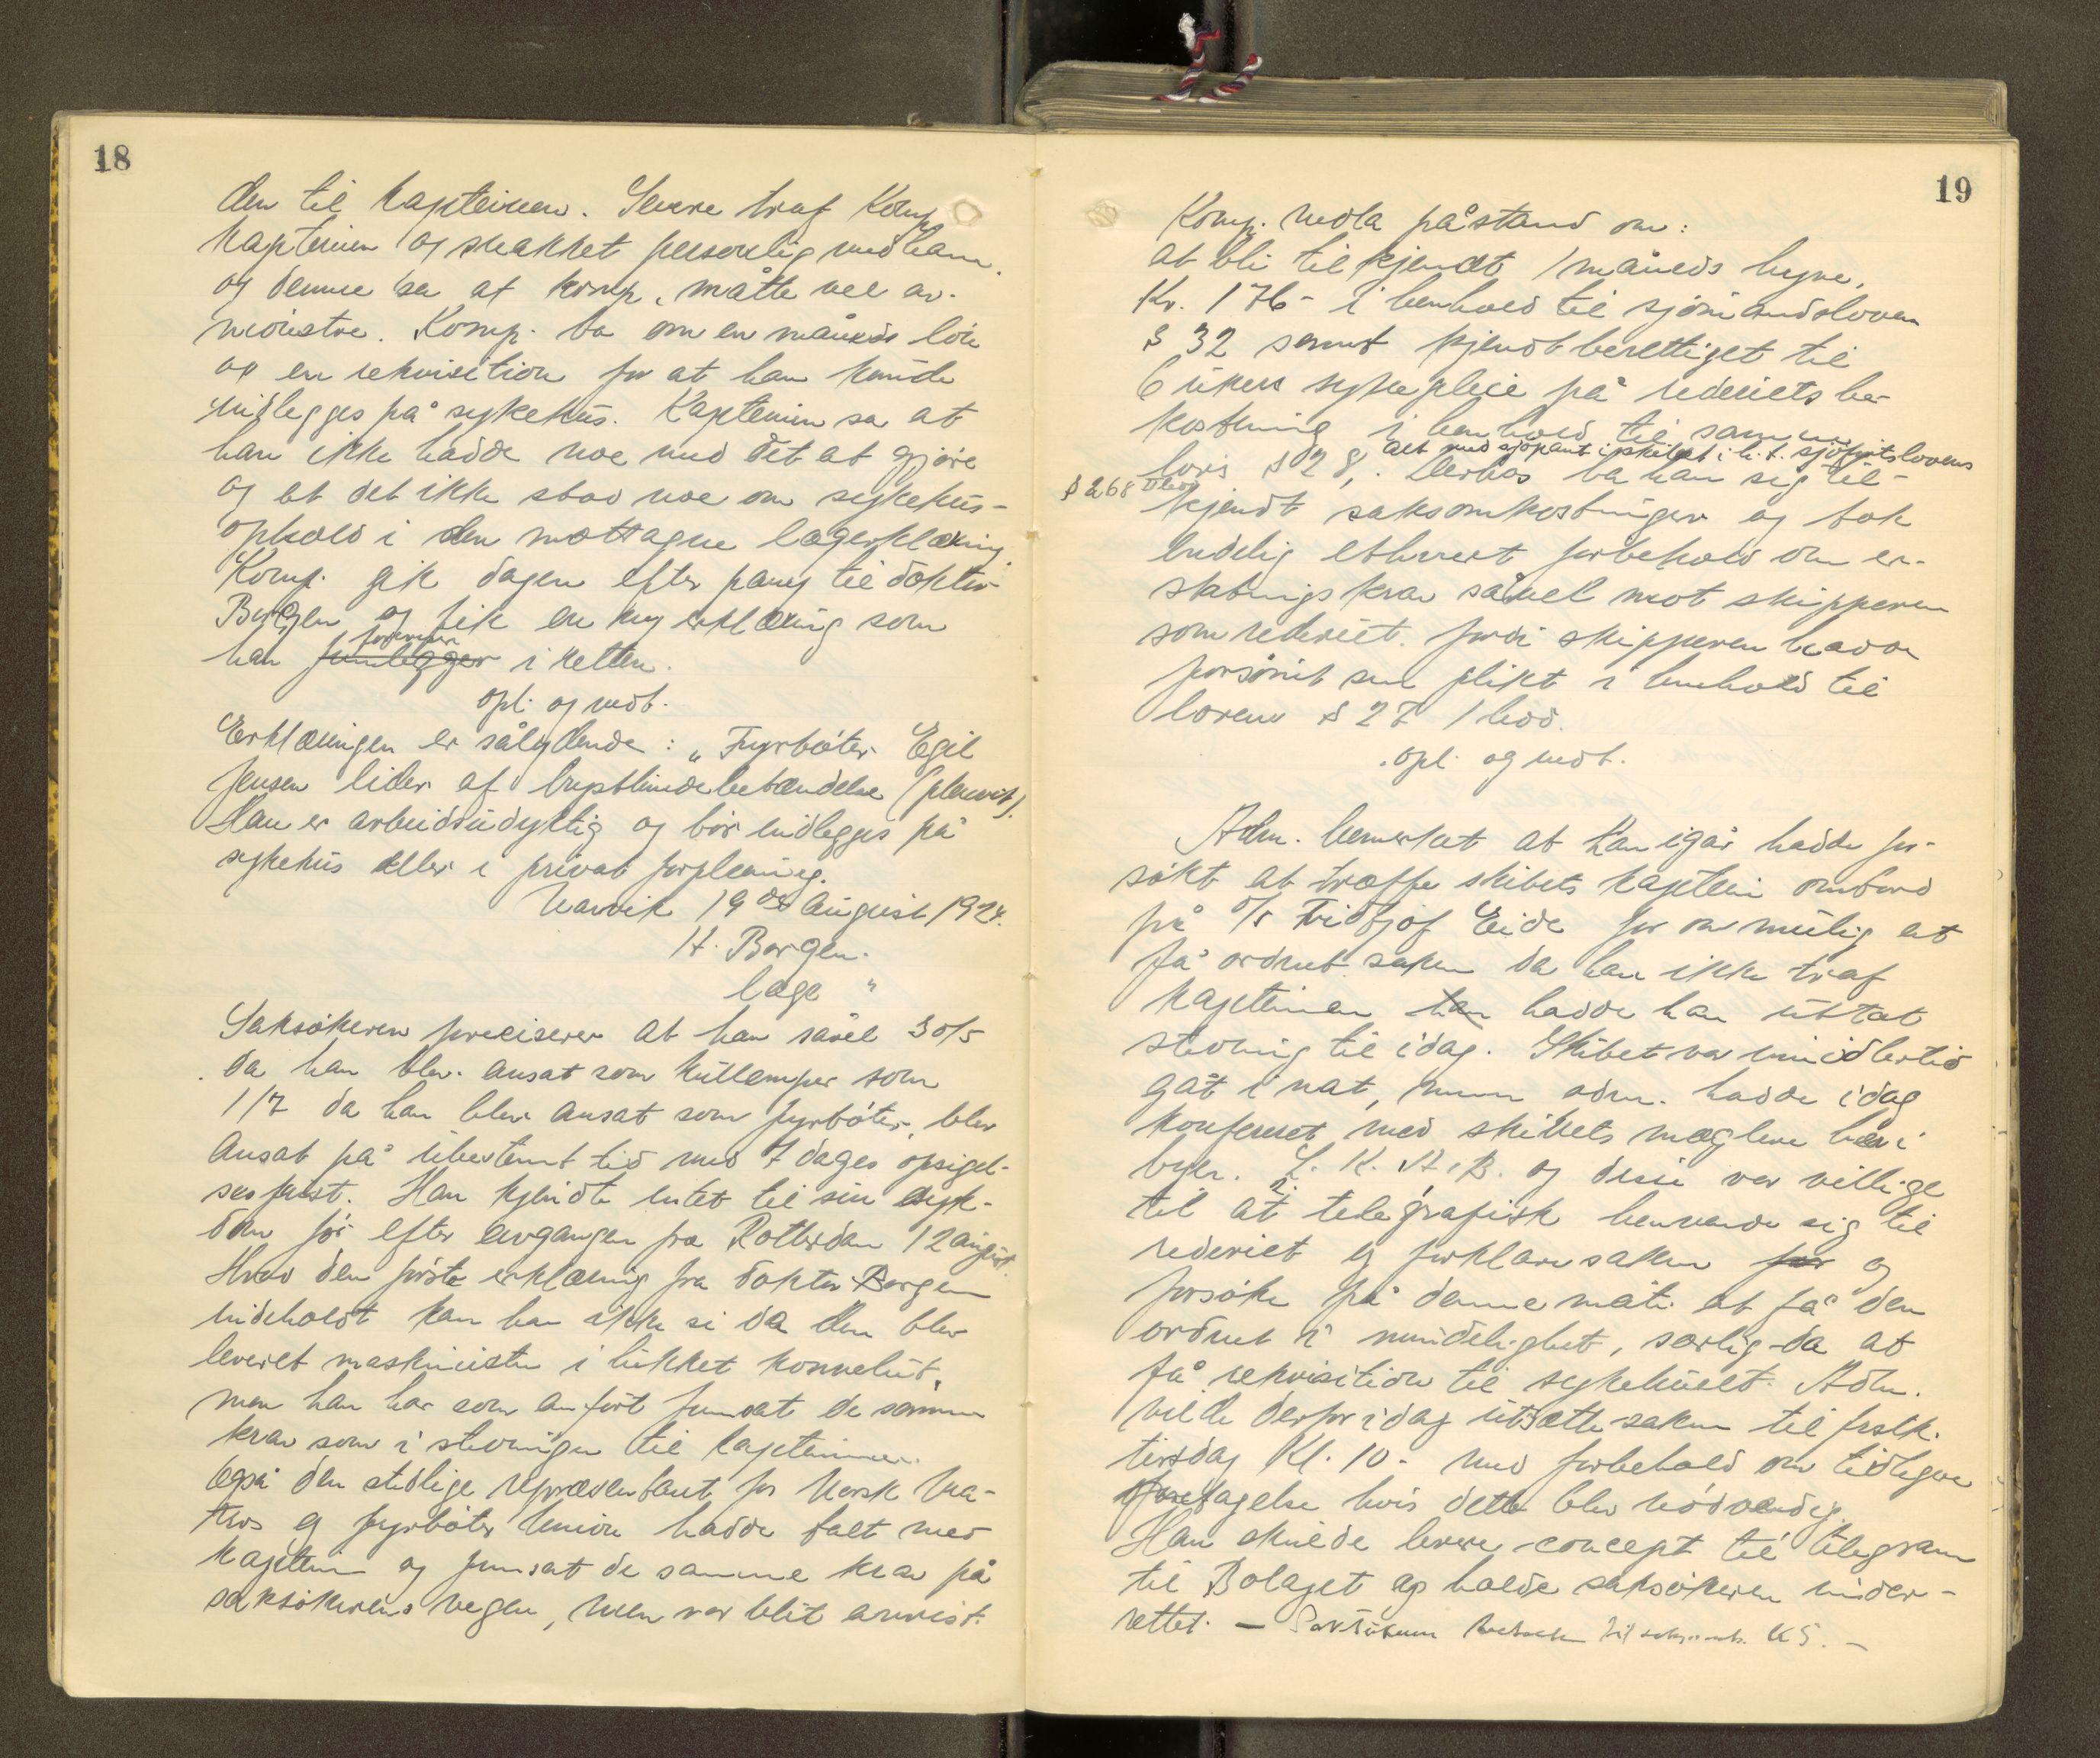 18
den til kapteinen. Senere traf Komp.
kapteinen og snakket personlig med ham.
og denne sa at komp. måtte vel av-
mønstre. Komp. ba om en måneds løn
og en rekvisition for at han kunde
indlegges på sykehus. Kapteinen sa at
han ikke hadde noe med det at gjøre
og at det ikke stod noe om sykehus-
ophold i den mottagne lægerklæring
Komp. gik dagen efter påny til doktor
Borgen og fik en ny erklæring som
han fremlegger foreviser i retten.
opl. og vedt.
Erklæringen er sålydende: „Fyrbøter Egil
Jensen lider af brysthindebetændelse (pleurit).
Han er arbeidsudyktig og bør indlegges på
sykehus eller i privat forpleining.
Narvik 19de August 1924.
H. Borgen.
læge "
Saksøkeren preciserer at han såvel 30/5
da han blev ansat som kullemper som
1/7 da han blev ansat som fyrbøter, blev
ansat på ubestemt tid med 7 dages opsigel-
sesfrist. Han kjendte intet til sin syk-
dom før efter avgangen fra Rotterdam 12 august.
Hvad den første erklæring fra doktor Borgen
indeholdt kan han ikke si da den blev
leveret maskinisten i lukket konvolut,
men han har som anført fremsat de samme
krav som i stevningen til kapteinen.
Også den stedlige repræsentant for Norsk Ma-
tros og fyrbøter Union hadde talt med
kaptein og fremsat de samme krav på
saksøkerens vegne, men var blit avvist.
19
Komp. nedla påstand om:
at bli tilkjendt 1 måneds hyre,
Kr. 176- i henhold til sjømandsloven
§ 32 samt kjendt berettiget til
6 ukers sykepleie på rederiets be-
kostning i henhold til samme
alt med sjøpant i skibet i h. t. sjøfartslovens
lovs § 28,. Derhos ba han sig til-
§ 268
kjendt saksomkostninger og tok
endelig ethvert forbehold om er-
statningskrav såvel mot skipperen
som rederiet fordi skipperen hadde
forsømt sin plikt i henhold til
lovens § 27 1 led.
opl. og vedt.
Adm. bemerket at han igår hadde for-
søkt at træffe skibets kaptein ombord
på D/S Fridtjof Eide for om mulig at
få ordnet saken da han ikke traf
kapteinen han hadde han uttat
stevning til idag. Skibet var imidlertid
gåt i nat, men adm. hadde idag
konfereret med skibets meglere her i
byen. L. K. A. B. og disse var villige
til at telegrafisk henvende sig til
rederiet og forklare saken for og
forsøke på denne måte at få den
ordnet i mindelighet, særlig da at
få rekvisition til sykehuset. Adm.
vilde derfor idag utsætte saken til frstk.
tirsdag Kl. 10. med forbehold om tidligere
foretagelse hvis dette blev nødvendig.
Han skulde levere concept til telegram
til Bolaget og holde saksøkeren under-
rettet. — Saksøkeren